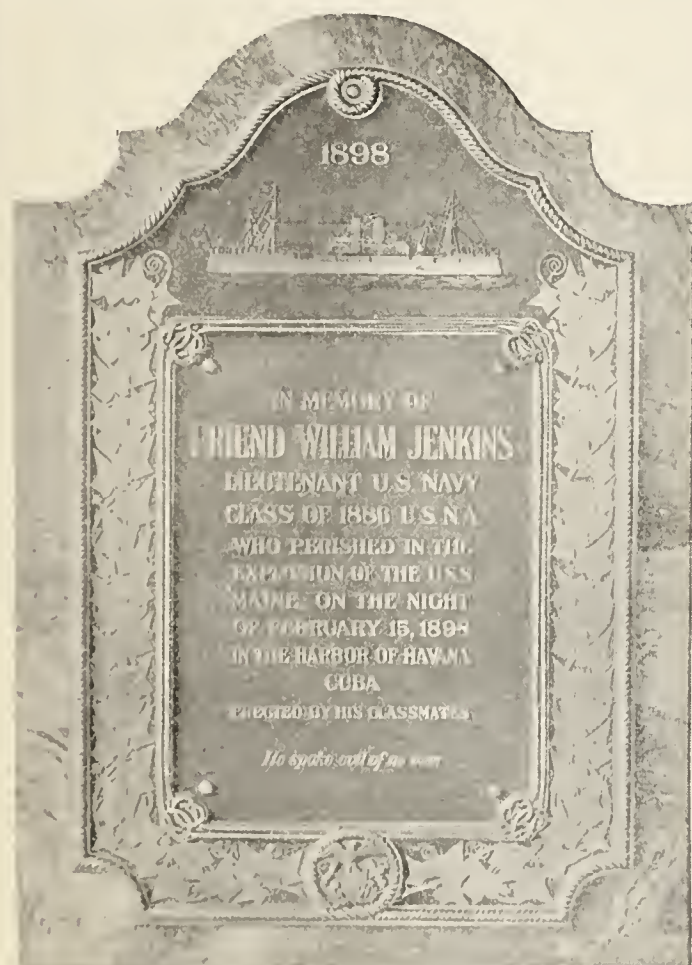 1898
IN MEMORY OF
FRIEND WILLIAM JENKINS
LIEUTENANT U.S. NAVY
CLASS OF 1886 U.S.N.A.
WHO PERISHED IN THE
EXPLOSION OF THE U.S.S.
MAINE, ON THE NIGHT
OF FEBRUARY 15, 1898
IN THE HARBOR OF HAVANA
CUBA
ERECTED BY HIS CLASSMATES
He spoke evil of no man